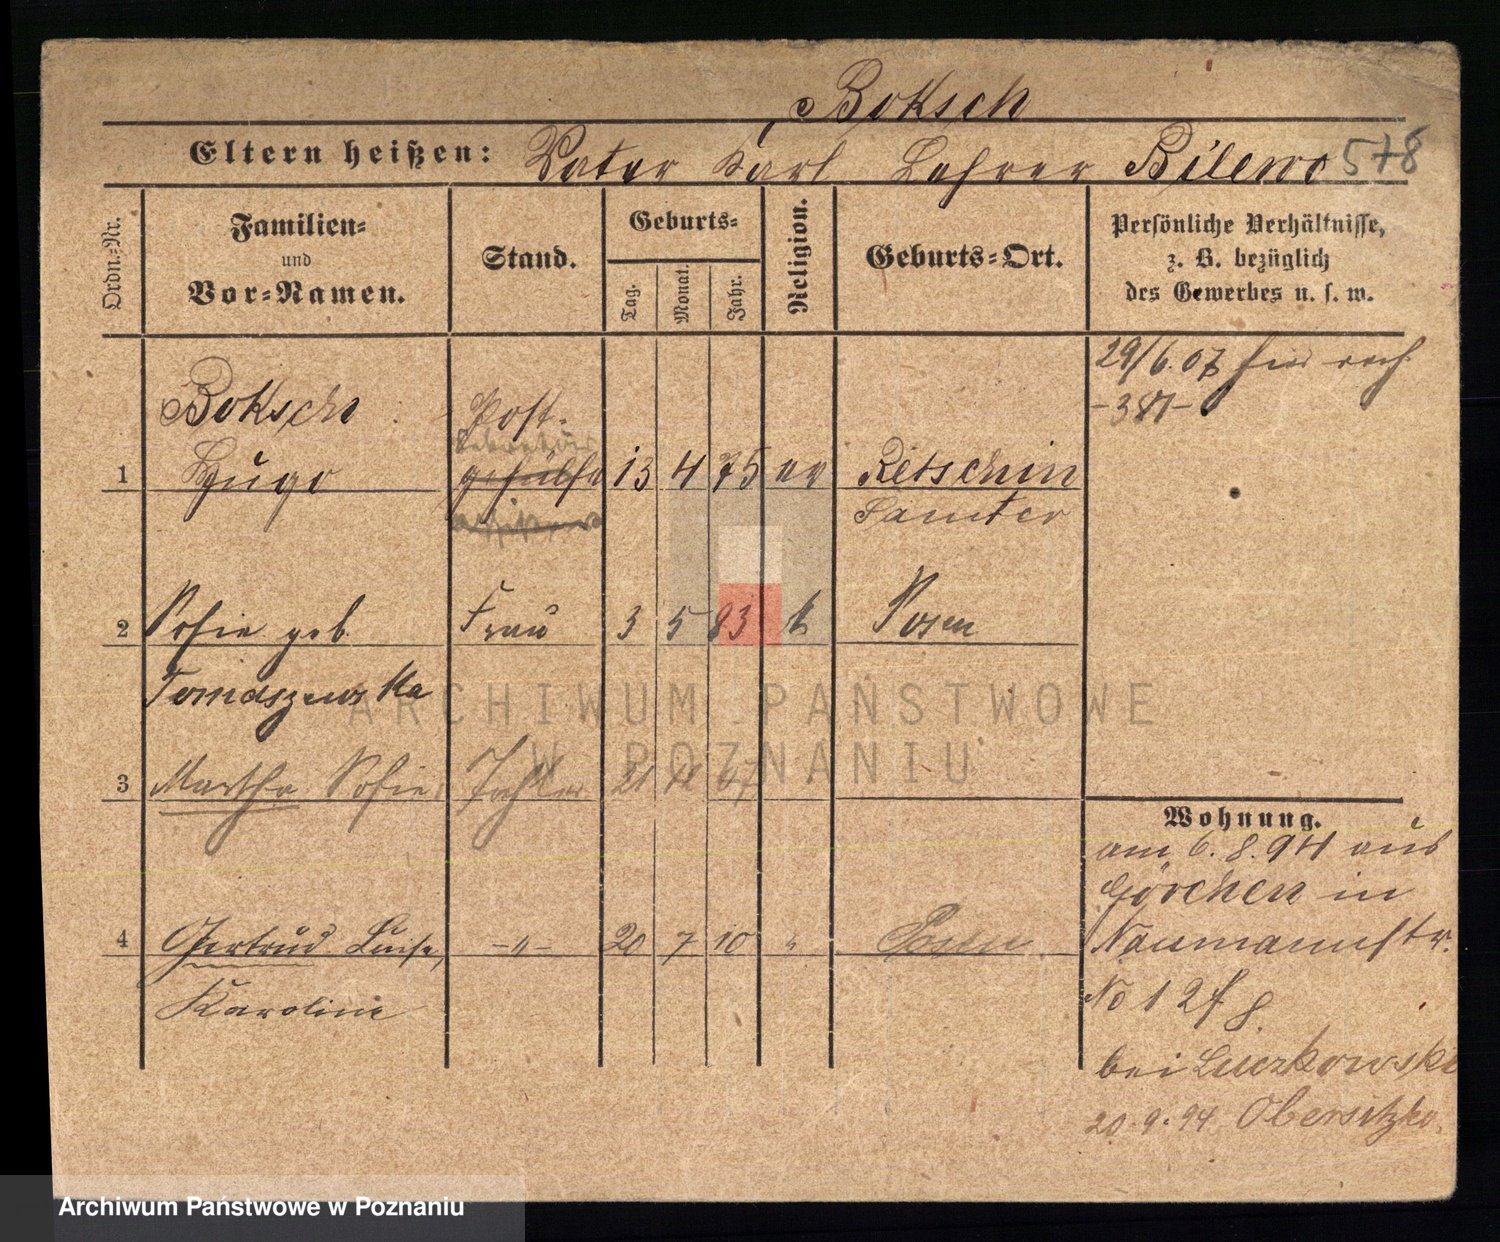 Boksch
Eltern heißen: Vater Karl Lehrer Bilewo 578
Ordn.-Nr.
Familien-
und
Vor-Namen.
Stand.
Geburts-
Tag.
Monat.
Jahr.
Religion.
Geburts-Ort.
Persönliche Verhältnisse,
z. B. bezüglich
des Gewerbes u. s. w.
29/6.07
Boksch Post-
1 Hugo gehülfe 13 4 75 ev Retschin
Samter
2 Sofie geb. Frau 3 5 83 k Posen
Tomaszewska
3 Martha Sofie Tochter 21
Wohnung.
am 6.8.94 aus
Görchen in
Naumannstr.
No 12
bei Luczkowski
20.9.94 Obersitzko.
4 Gertrud Luise, -"- 20 7 10 " Posen
Karoline
ARCHIWUM PAŃSTWOWE
W POZNANIU
Archiwum Państwowe w Poznaniu